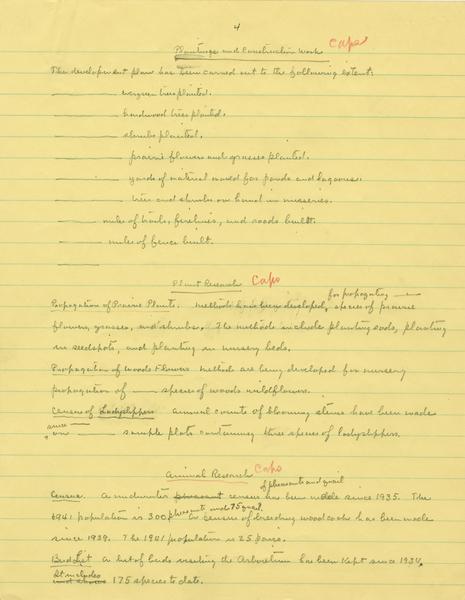 4
Plantings and Construction Work Caps
The development plan has been carried out to the following extent:
________ evergreen trees planted.
________ hardwood trees planted.
________ shrubs planted.
________ prairie flowers and grasses planted.
________ yards of material moved for ponds and lagoons.
________ trees and shrubs on hand in nurseries.
______ miles of trails, firelines, and roads built.
______ miles of fence built.
______
Plant Research Caps
for propagating ——
Propagation of Prairie Plants. Methods have been developed, species of prairie
flowers, grasses, and shrubs. The methods include planting sods, planting
in seedspots, and planting in nursery beds.
Propagation of Woods Flowers. Methods are being developed for nursery
propagation of ____ species of woods wildflowers.
Census of Ladyslippers Annual counts of blooming stems have been made
since ____
on ____ sample plots containing three species of ladyslippers.
Animal Research Caps
of pheasants and quail
Census. A midwinter pheasant census has been made since 1935. The
pheasants and 75 quail.
1941 population is 300 A census of breeding woodcocks has been made
since 1939. The 1941 population is 25 pairs.
Bird List A list of birds visiting the Arboretum has been kept since 1934.
It includes
and shows 175 species to date.